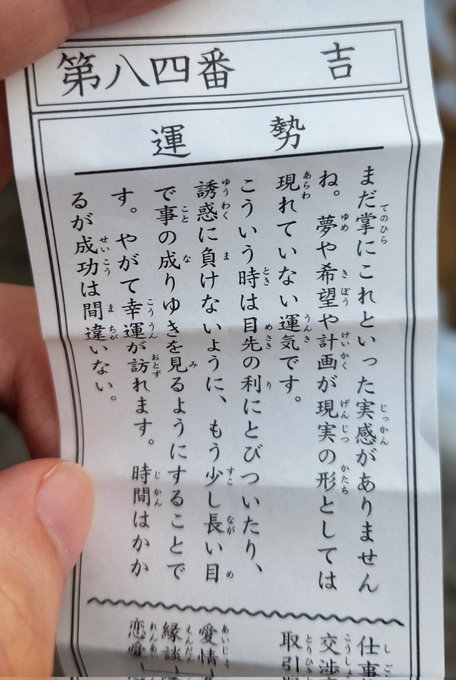 第八四番 吉
運勢
まだ掌にこれといった実感がありません
ね。夢や希望や計画が現実の形としては
現れていない運気です。
こういう時は目先の利にとびついたり、
誘惑に負けないように、もう少し長い目
で事の成りゆきを見るようにすることで
す。やがて幸運が訪れます。時間はかか
るが成功は間違いない。
仕事
交渉
取引
愛情
縁談
恋愛